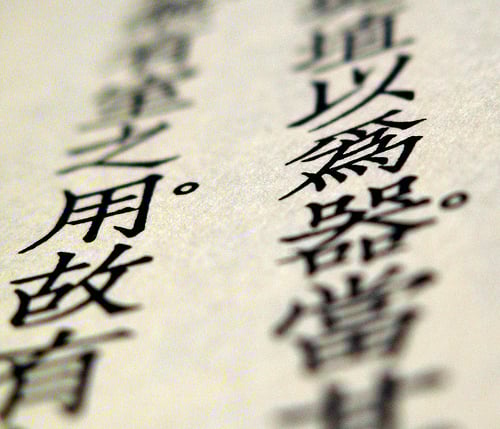 埴以爲器。當其
有室之用。故有